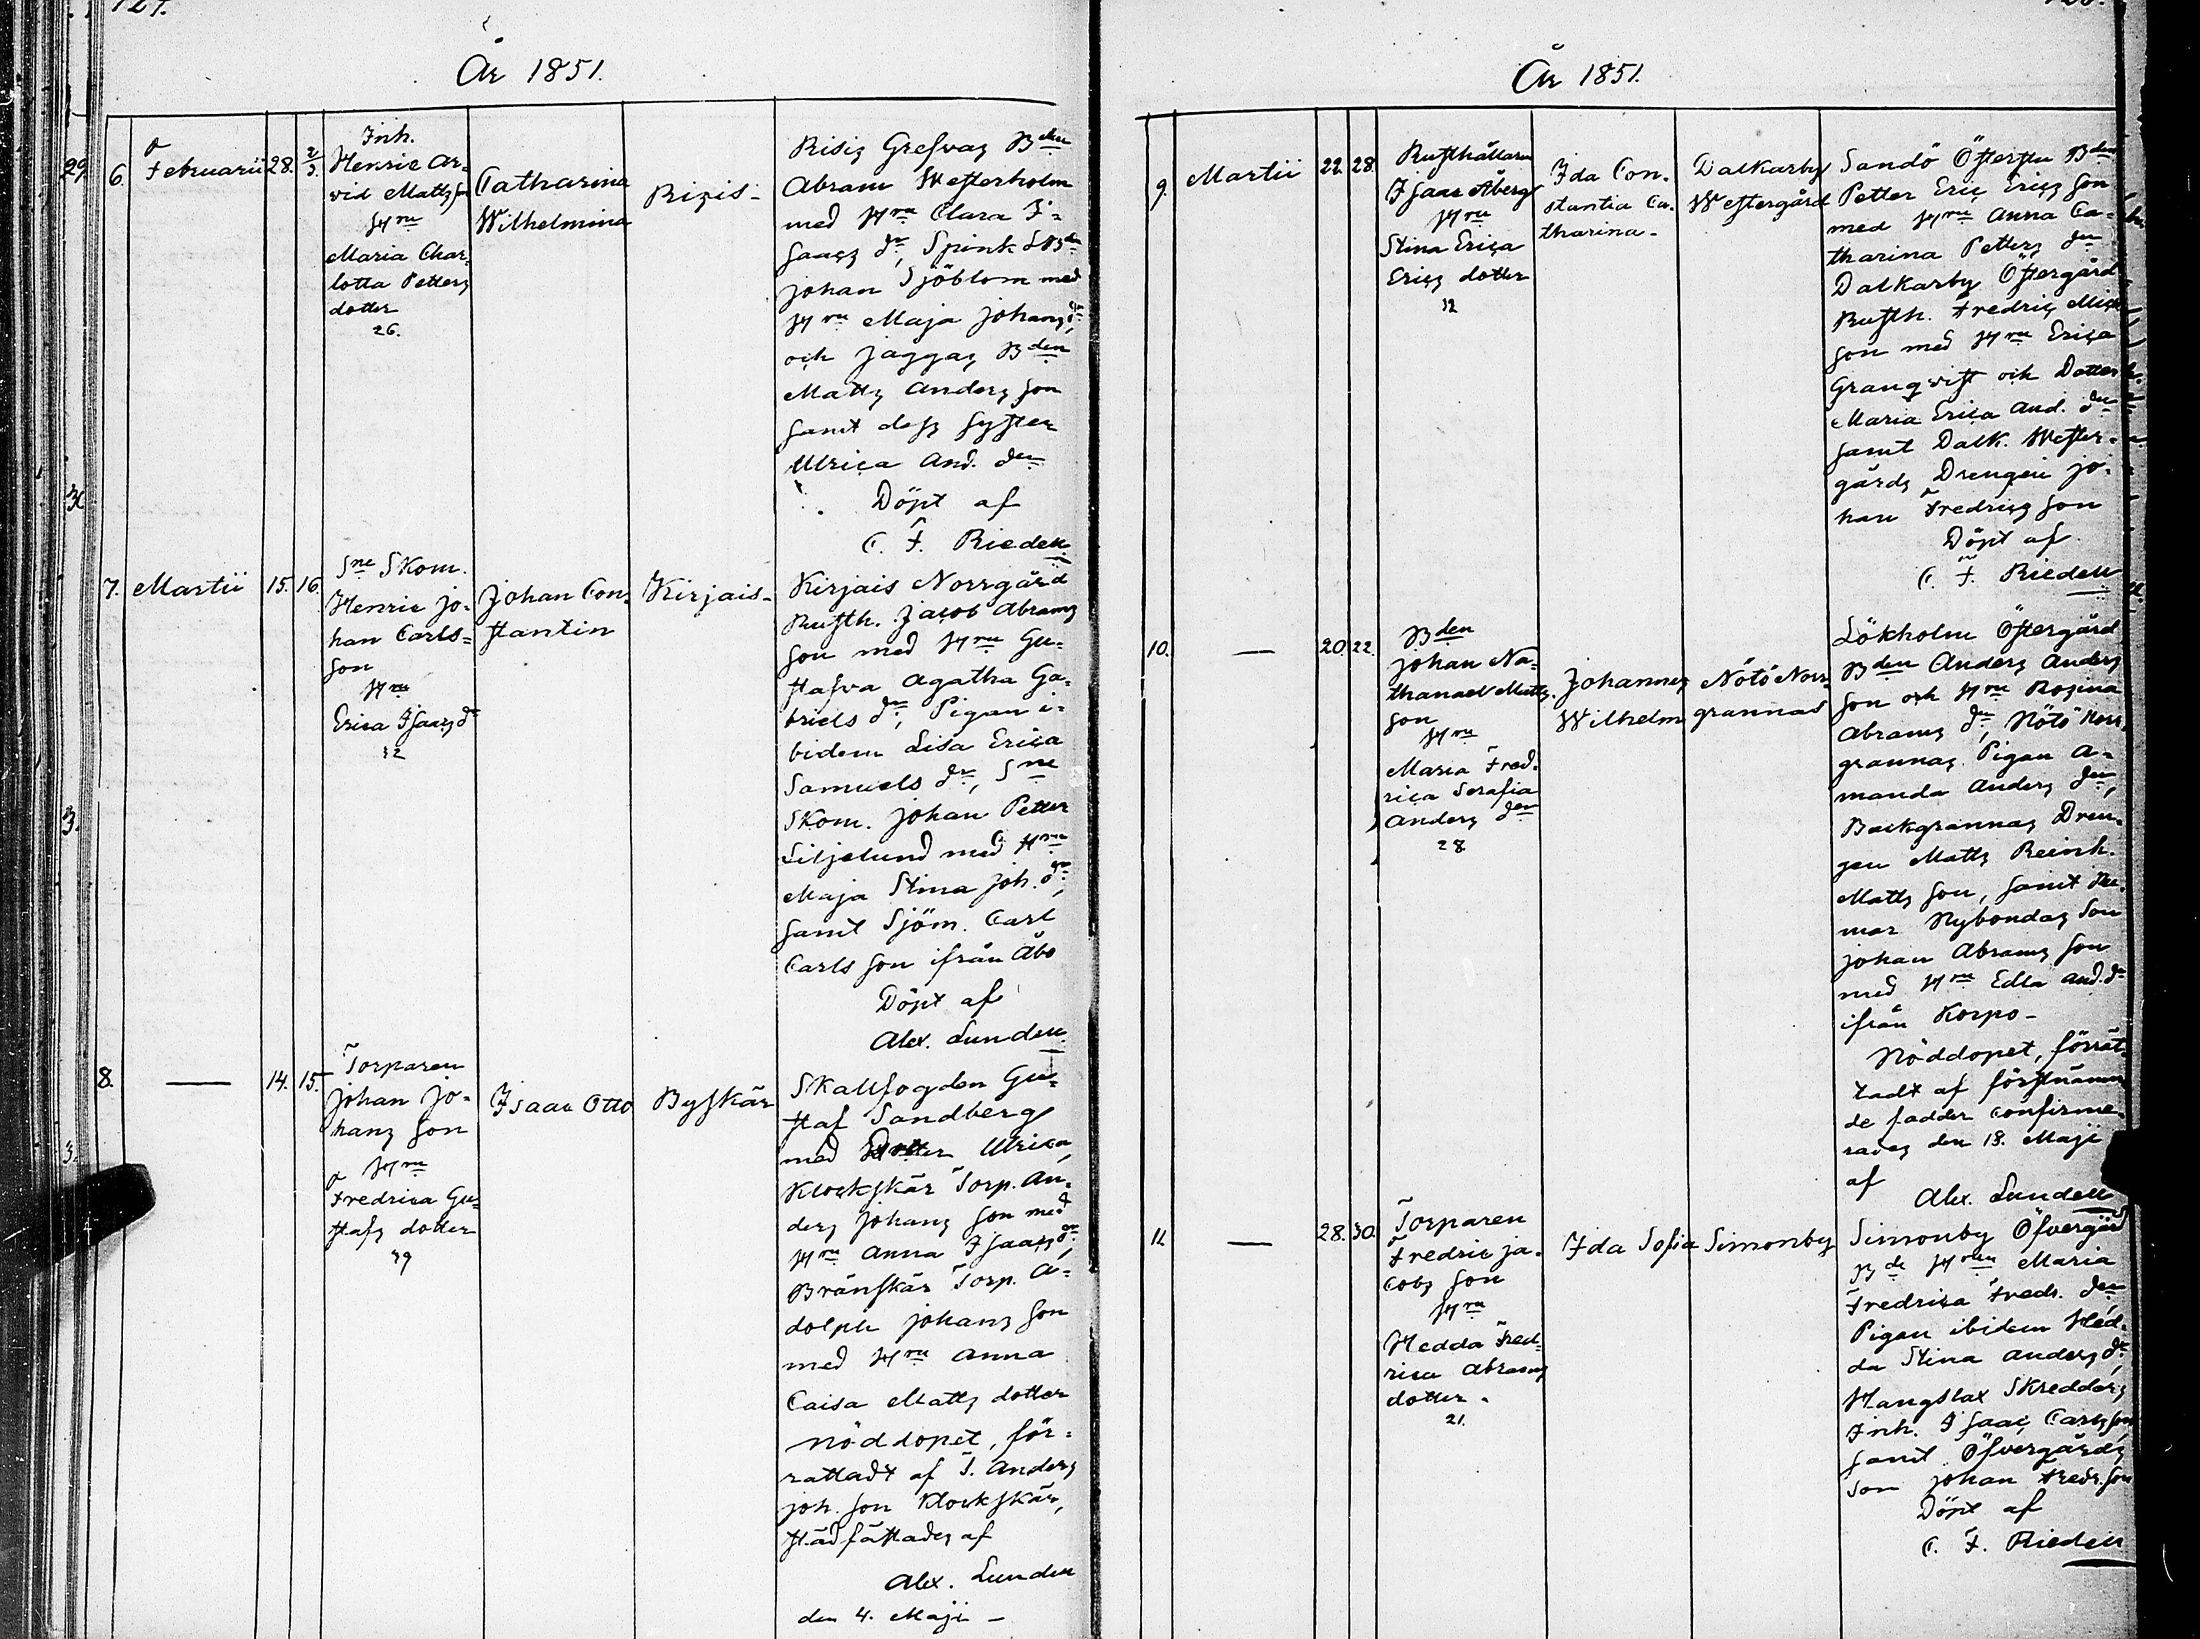 127.
År 1851.
29
6.
Februarii
28.
2/3.
Inh.
Henric Ar-
vid Mattsson
Hru
Maria Char-
lotta Petters
dotter
26.
Catharina
Wilhelmina
Rizis-
Risis Grefvas Bden
Abram Westerholm
med Hru Clara I-
saacs dr, Spink LBdn
Johan Sjöblom med
Hru Maja Johans dr,
och Jaggas Bden
Matts Anders son
samt dess syster
Ulrica And. dr
Döpt af
C. F. Riedell
30
7.
Martii
15.
16.
Sne Skom.
Henric Jo-
han Carls-
son
Hru
Erica Isaacs dr
32
Johan Con-
stantin
Kirjais-
Kirjais Norrgård
Rusth. Jacob Abrams
son med Hru Gu-
stafva Agatha Ga-
briels dr, Pigan i-
bidem Lisa Erica
Samuels dr, Sne
Skom. Johan Petter
Liljelund med Hru
Maja Stina Joh. dr,
samt Sjöm. Carl
Carls son ifrån Åbo
Döpt af
Alex. Lundell
3.
8.
—
14.
15.
Torparen
Johan Jo-
hans son
Hru
Fredrica Gu-
stafs dotter
39
Isaac Otto
Byskär
Skallfogden Gu-
staf Sandberg
med Dotter Ulrica,
Klockskär Torp. An-
ders Johans son med
Hru Anna Isaacs dr,
Bränskär Torp. A-
dolph Johans son
med Hru Anna
Caisa Matts dotter
Nöddopet, för-
rattadt af T. Anders
Joh. son Klockskär,
stadfästades af
Alex. Lundell
den 4. Maji –
3.
År 1851.
9.
Martii
22.
28.
Rusthållaren
Isaac Åberg
Hru
Stina Erica
Erics dotter
32
Ida Con-
stantia Ca-
tharina-
Dalkarby
Westergård
Sandö Östersta Bden
Petter Eric Erics son
med Hru Anna Ca-
tharina Petters dr
Dalkarby Östergård
Rusth. Fredric Mick
son med Hru Erica
Granqvist och Dotter
Maria Erica And. dr
samt Dalk. Wester-
gårds Drengen Jo-
han Fredrics son
Döpt af
C. F. Riedell
10.
—
20.
22.
Bden
Johan Na-
thanael Matts
son
Hru
Maria Fred-
rica Serafia
Anders dr
28.
Johannes
Wilhelm
Nötö Norr-
grannas
Lökholm Östergård
Bden Anders Anders
son och Hru Rosina
Abrams dr, Nötö Norr
grannas Pigan A-
manda Anders dr,
Backgrannas Dren-
gen Matts Reinh.
Matts son, samt
mar Nybondas Son
Johan Abrams son
med Hru Edla And. dr
ifrån Korpo-
Nöddopet, förrät-
tadt af förstnämn
de fadder confirme-
rades den 18. Maji
af
Alex. Lundell
11.
—
28.
30.
Torparen
Fredric Ja-
cobs son
Hru
Hedda Fred-
rica Abrams
dotter.
21.
Ida Sofia
Simonby
Simonby Öfvergård
Bde Hrun Maria
Fredrica Fredr. dr
Pigan ibidem Hed-
da Stina Anders dr,
Hangslax Skredders
Inh. Isaac Carlsson,
samt Öfvergårds
Son Johan Fredr. son
Döpt af
C. F. Riedell